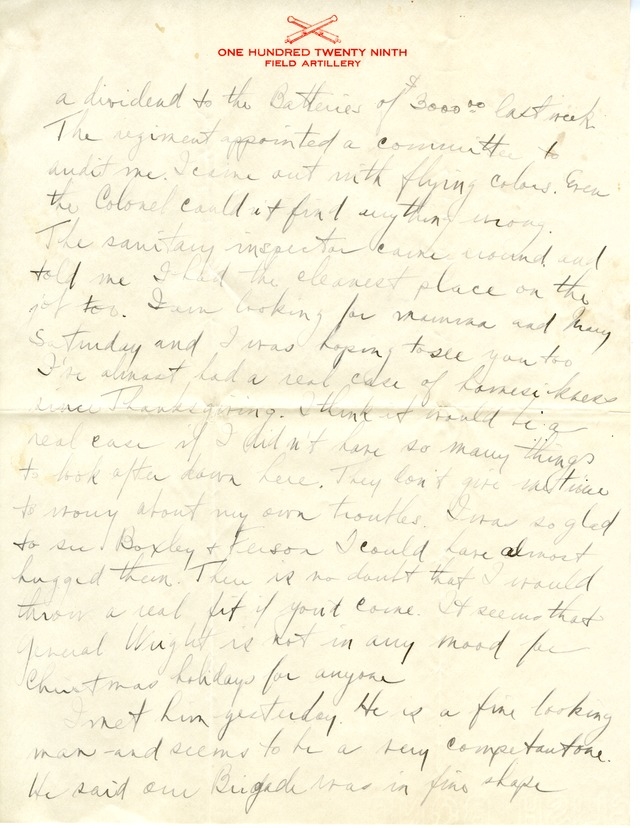 ONE HUNDRED TWENTY NINTH
FIELD ARTILLERY
a dividend to the Batteries of $3000.00 last week.
The regiment appointed a committee to
audit me. I came out with flying colors. Even
the Colonel couldn't find anything wrong.
The sanitary inspector came around and
told me I had the cleanest place on the
job too. I am looking for mamma and Mary
Saturday and I was hoping to see you too
I've almost had a real case of homesickness
since Thanksgiving. I think it would be a
real case if I didn't have so many things
to look after down here. They don't give me time
to worry about my own troubles. I was so glad
to see Boxley & I could have almost
hugged them. There is no doubt that I would
throw a real fit if you'd come. It seems that
General Wright is not in any mood for
Christmas holidays for anyone
I met him yesterday. He is a fine looking
man and seems to be a very competant one.
He said our Brigade was in fine shape